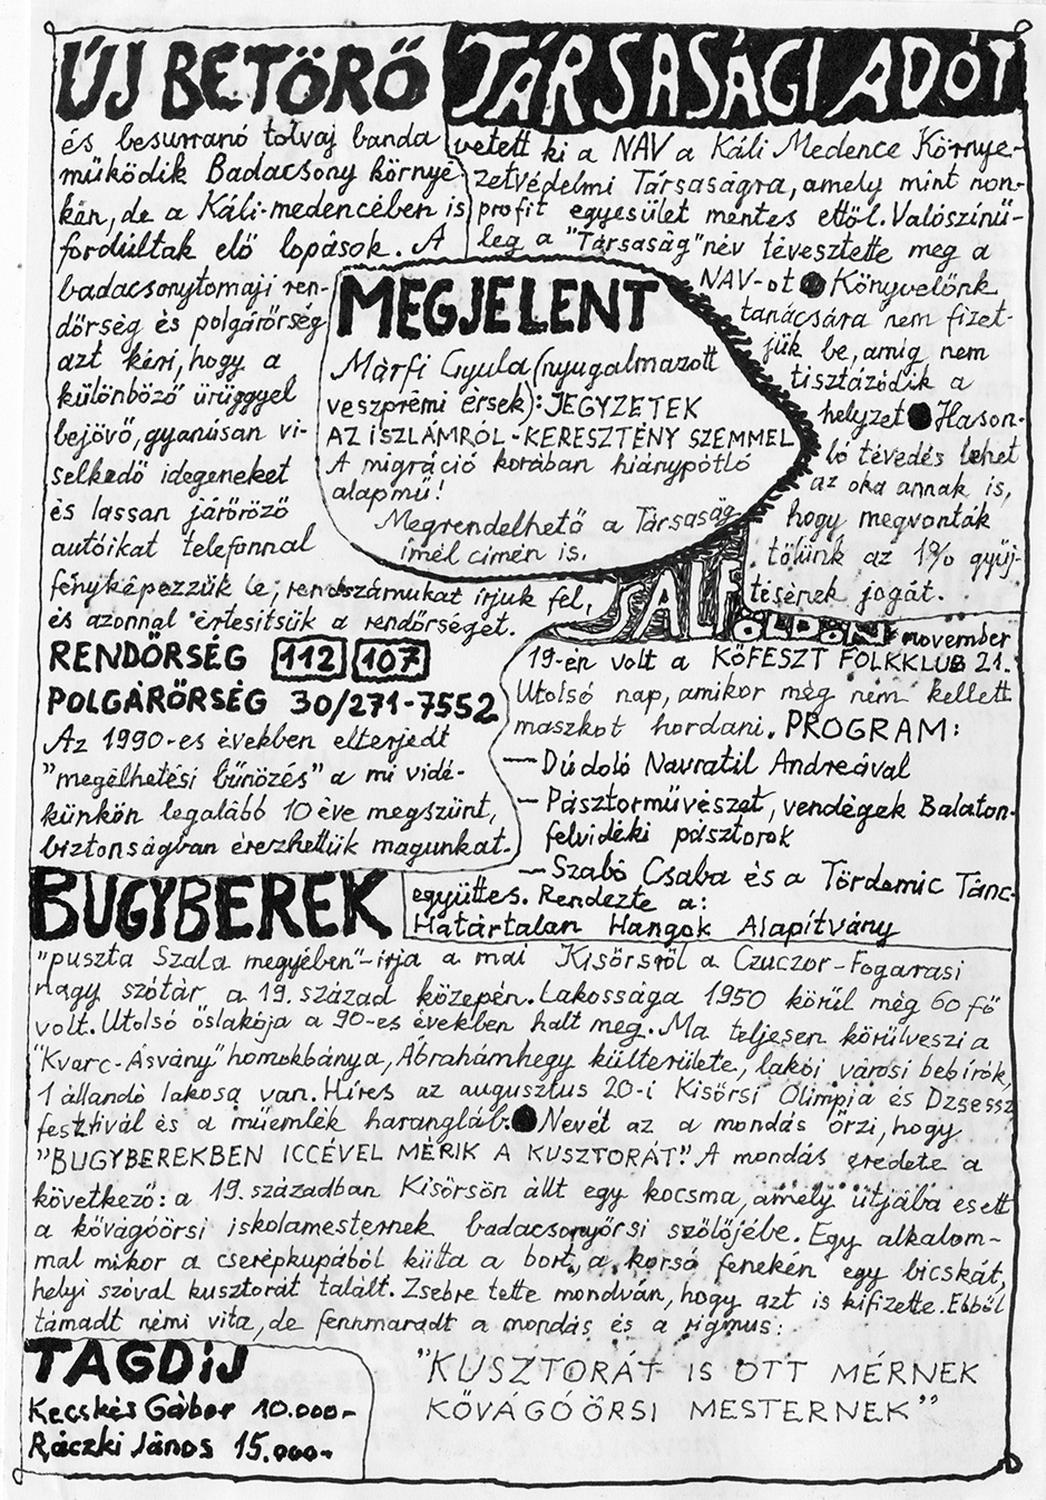 ÚJ BETÖRŐ
és besurranó tolvaj banda
működik Badacsony környé-
kén, de a Káli-medencében is
fordúltak elő lopások. A
badacsonytomaji ren-
dőrség és polgárőrség
azt kéri, hogy a
különböző ürüggyel
bejövő, gyanúsan vi-
selkedő idegeneket
és lassan járőröző
autóikat telefonnal
fényképezzük le, rendszámukat írjuk fel,
és azonnal értesitsük a rendőrséget.
RENDŐRSÉG 112 107
POLGÁRŐRSÉG 30/271-7552
Az 1990-es években elterjedt
"megélhetési bűnözés" a mi vidé-
künkön legalább 10 éve megszünt,
biztonságban érezhettük magunkat.
TÁRSASÁGI ADÓT
vetett ki a NAV a Káli Medence Környe-
zetvédelmi Társaságra, amely mint non-
profit egyesület mentes ettől. Valószínű-
leg a "Társaság" név tévesztette meg a
NAV-ot ● Könyvelőnk
tanácsára nem fizet-
jük be, amíg nem
tisztázódik a
helyzet ● Hason-
ló tévedés lehet
az oka annak is,
hogy megvonták
tőlünk az 1% gyűj-
tésének jogát.
MEGJELENT
Márfi Gyula (nyugalmazott
veszprémi érsek): JEGYZETEK
AZ ISZLÁMRÓL - KERESZTÉNY SZEMMEL
A migráció korában hiánypótló
alapmű!
Megrendelhető a Társaság
ímél címén is.
SALFÖLDÖN november
19-én volt a KŐFESZT FOLKKLUB 21.
Utolsó nap, amikor még nem kellett
maszkot hordani. PROGRAM:
— Dúdoló Navratil Andreával
— Pásztorművészet, vendégek Balaton-
felvidéki pásztorok
— Szabó Csaba és a Tördemic Tánc-
együttes. Rendezte a:
Határtalan Hangok Alapítvány
BUGYBEREK
"puszta Szala megyében" - írja a mai Kisörsről a Czuczor-Fogarasi
nagy szótár a 19. század közepén. Lakossága 1950 körül még 60 fő
volt. Utolsó őslakója a 90-es években halt meg. Ma teljesen körülveszi a
"Kvarc-Ásvány" homokbánya, Ábrahámhegy külterülete, lakói városi bebírók,
1 állandó lakosa van. Híres az augusztus 20-i Kisörsi Olimpia és Dzsessz
fesztivál és a műemlék harangláb. ● Nevét az a mondás őrzi, hogy
"BUGYBEREKBEN ICCÉVEL MÉRIK A KUSZTORÁT." A mondás eredete a
következő: a 19. században Kisörsön állt egy kocsma, amely útjába esett
a kővágóörsi iskolamesternek badacsonyörsi szőlőjébe. Egy alkalom-
mal mikor a cserépkupából kiitta a bort, a korsó fenekén egy bicskát,
helyi szóval kusztorát talált. Zsebre tette mondván, hogy azt is kifizette. Ebből
támadt némi vita, de fennmaradt a mondás és a rigmus:
"KUSZTORÁT IS OTT MÉRNEK
KŐVÁGÓÖRSI MESTERNEK"
TAGDÍJ
Kecskés Gábor 10.000-
Ráczki János 15.000-